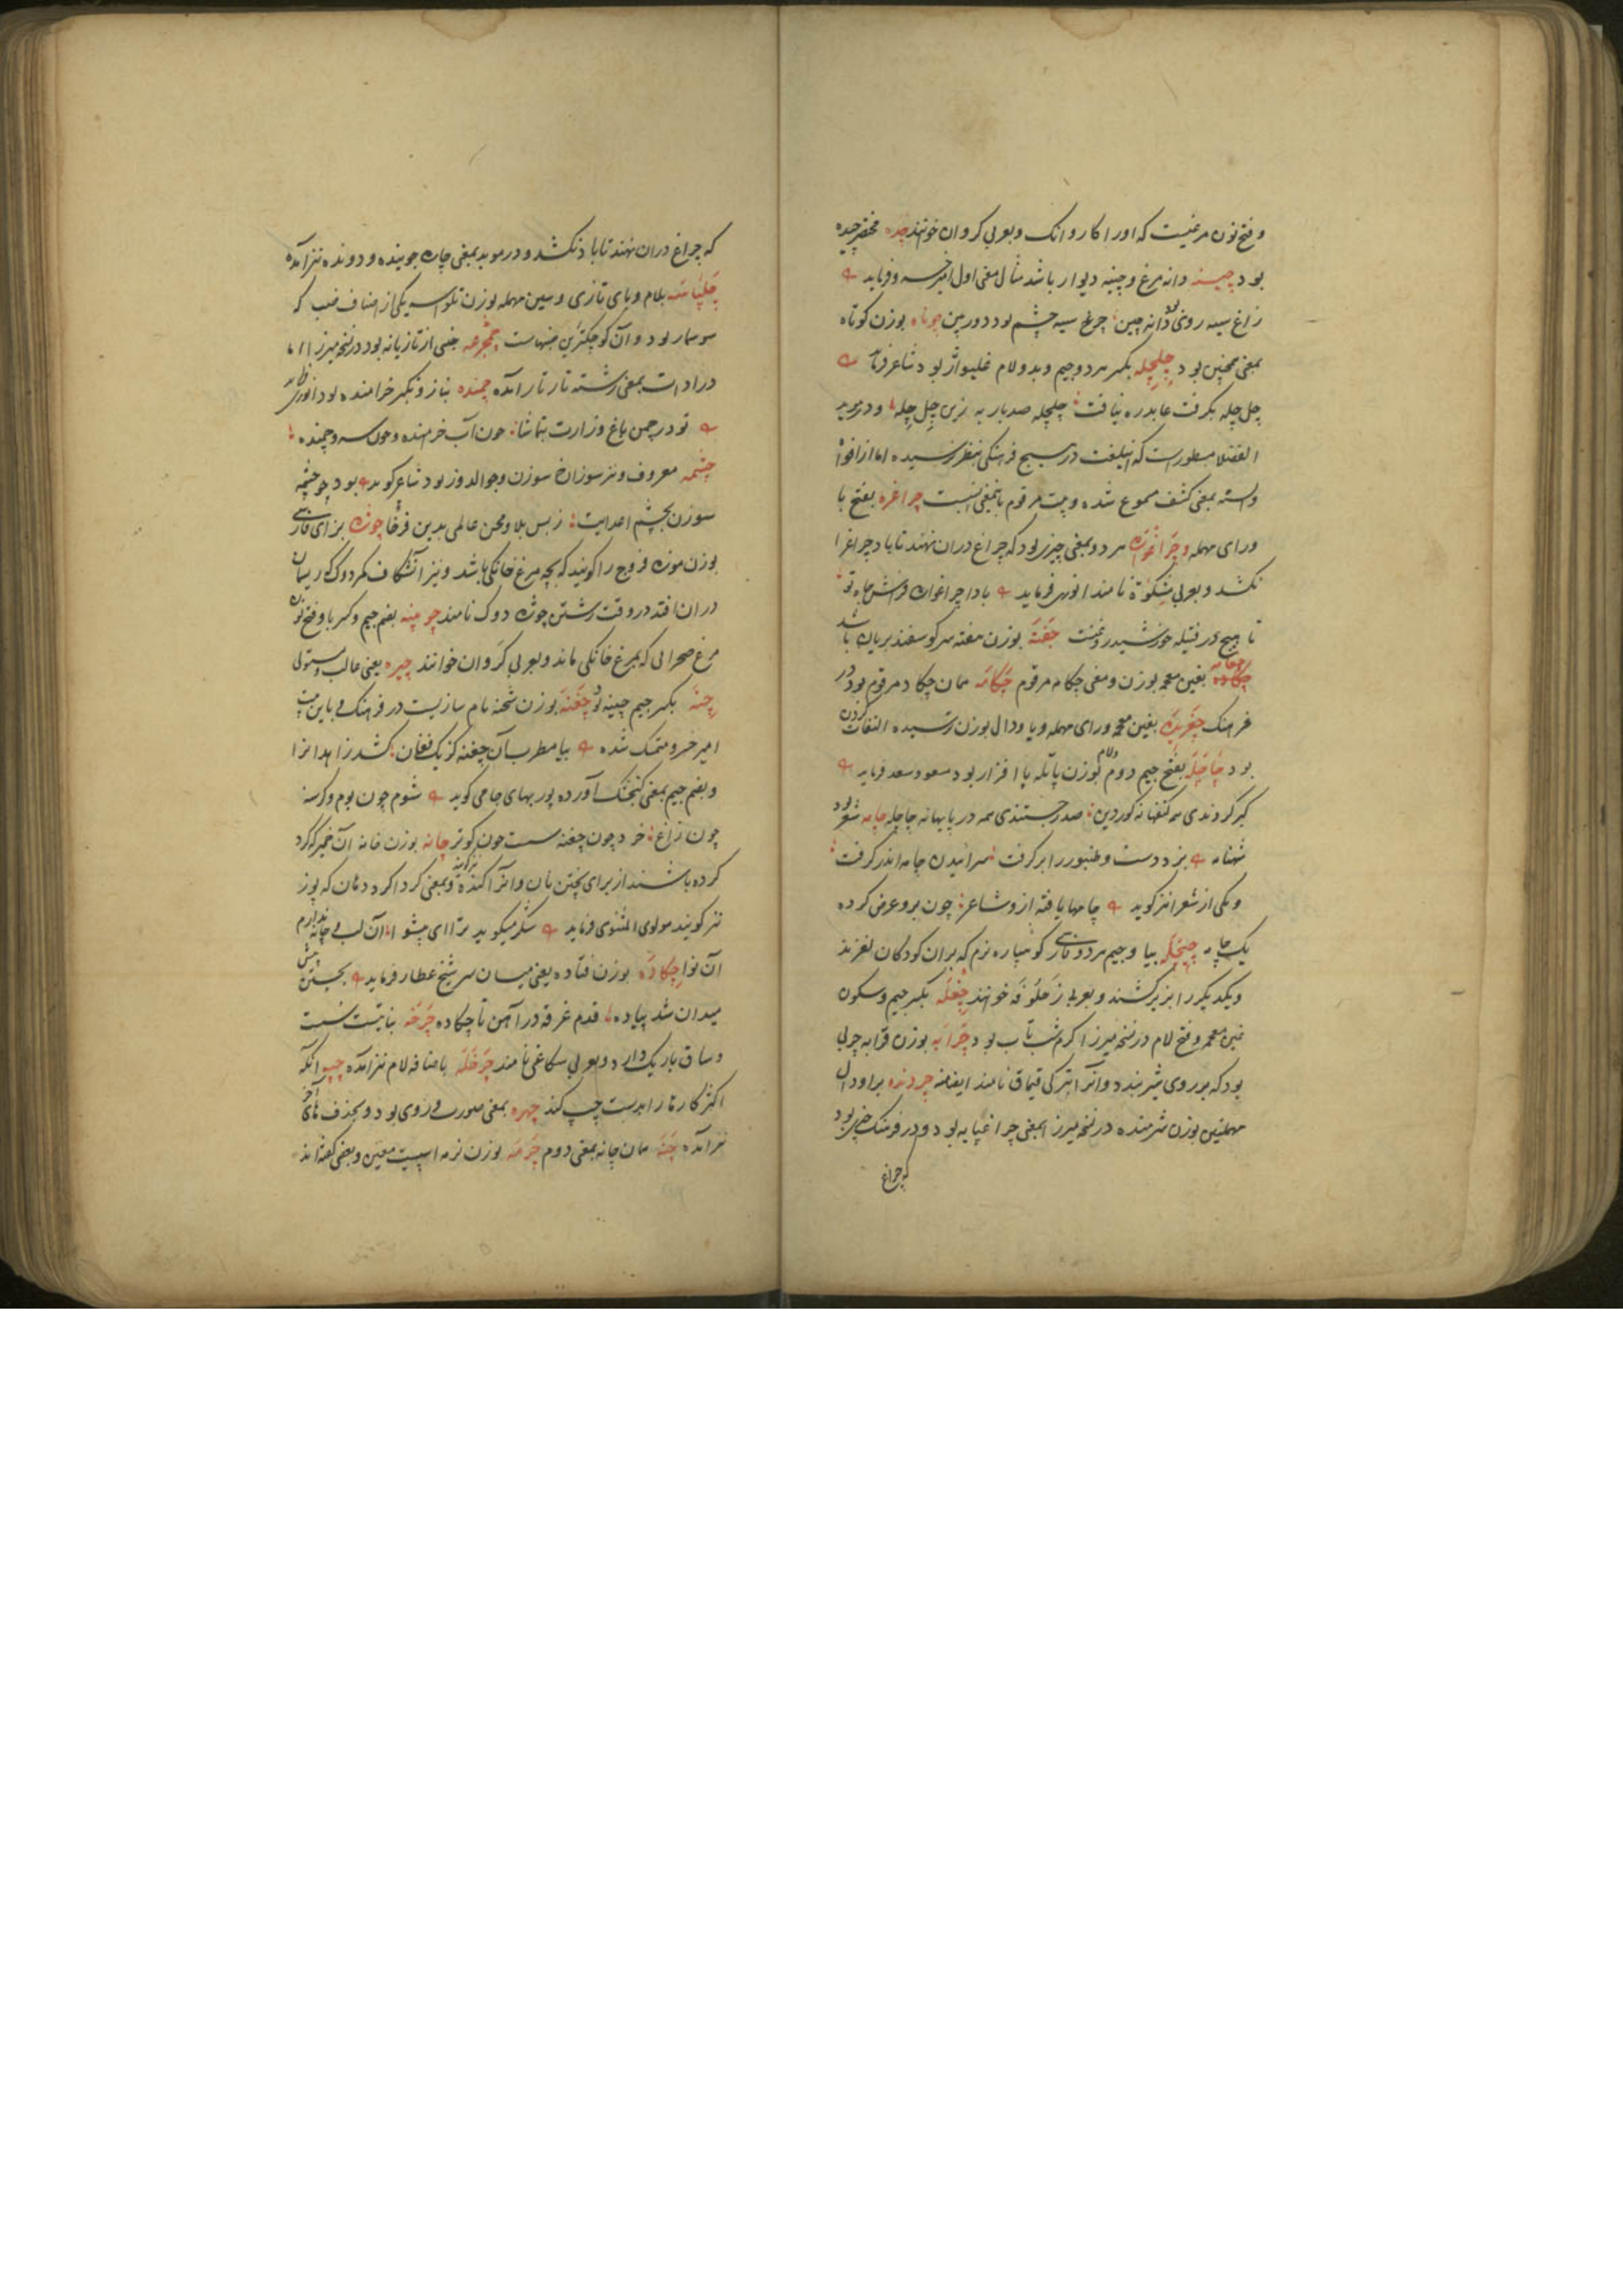 و فتح نون مرغیست که اورا کاروانک و بعربی کروان خوانند چده مخفف چیده
بود چینه دانه مرغ و چینه دیوار باشد مثال معنی اول امیرخسرو فرماید
زاغ سیه روی دانه چین چرغ سیه چشم بود دوربین چوتاه بوزن کوتاه
بمعنی همچنین بود چلچله بکسر هر دو جیم و بدو لام غلیواژ بود شاعر فرماید
چل چله بگرفت عابد ره نیافت چلچله صد بار به زین چل چله و در موید
الفضلا مسطورست که این لغت در هیچ فرهنگی بنظر نرسیده اما از افواه
بمعنی کشف مسموع شده و بیت مرقوم باین معنی انسبست چراغره بفتح با
و رای مهمله و چراغواره هر دو بمعنی چیزی بود که چراغ دران نهند تا باد چراغ را
نکشد و بعربی مشکوة نامند انوری فرماید باد چراغواره فراش جاه تو
تا هیچ در فتیله خورشید روغنست چفته بوزن هفته سر گوسفند بریان باشد
بغین معجمه بوزن و معنی چکامه مرقوم چکاته همان چکاد مرقوم بود در
فرهنگ چغریده بغین معجمه و رای مهمله و یا و دال بوزن رسیده التفات کردن
بود چاچله بفتح جیم دوم و لام بوزن پاتله پا افزار بود مسعود سعد فرماید
گبر گروندی همه کفتها نه کوردین صدر جستندی همه در پا بهانه چاچله چامه شعر بود
شهنامه بزد دست و طنبور را بر گرفت سرائیدن چامه اندر گرفت
و یکی از شعرا نیز گوید چامها یافته از و شاعر چون برو عرض کرده
یک چامه چیچله بیا و جیم هر دو فارسی گو شپاره نرم که بران کودکان لغزند
و یکدیگر را بزیر کشند و بعربی زحلوفه خوانند چغله بکسر جیم و سکون
غین معجمه و فتح لام در نسخه میرزا کرم شب تاب بود چرابه بوزن قرابه چربی
بود که بر روی شیر بندد و آنرا بترکی قیماق نامند ایضا منه چردنده برا و دال
مهملتین بوزن شرمنده در نسخه میرزا بمعنی چراغپایه بود و در فرهنگ چیزی بود
که چراغ
که چراغ دران نهند تا باد نکشد و در موید بمعنی چاره جوینده و دونده نیز آمده
چلپاسه بلام و بای تازی و سین مهمله بوزن تلواسه یکی از اصناف ضب که
سوسمار بود و آن کوچکترین جنسهاست چمچرغه جنسی از تازیانه بود در نسخه میرزا اما
در ادات بمعنی رشته تار تار آمده چمنده بناز و تکبر خرامنده بود انوری
تو در چمن باغ وزارت بتماشا چون آب خرامنده و چون سرو چمنده
چشمه معروف و نیز سوراخ سوزن و جوالدوز بود شاعر گوید بود چو چشمه
سوزن بچشم اعدایت ز بس بلا و محن عالمی بدین فرخا چوژه بزای فارسی
بوزن موزه فروج را گویند که بچه مرغ خانگی باشد و نیز آن شکاف سر دوک که ریسمان
دران افتد در وقت رشتن چوژه دوک نامند چوبینه بضم جیم و کسر با و فتح نون
مرغ صحرائی که بمرغ خانگی ماند و بعربی کروان خوانند چیره یعنی غالب و مستولی
چنه بکسر جیم چینه بود چغنه بوزن شحنه نام سازیست در فرهنگ و باین بیت
امیر خسرو متمسک شده بیا مطرب آن چغنه کز یک فغان کشد زاهدانرا
و بضم جیم بمعنی گنجشک آورده پور بهای جامی گوید شوم چون بوم و گرسنه
چون زاغ خرد چون چغنه سست چون کوتر چانه بوزن خانه آن خمیر که گرد
کرده باشند از برای پختن نان و آنرا کنده نیز گویند و بمعنی گرداگرد دهان که پوز
نیز گویند مولوی المثنوی فرماید شکر میگوید ترا ای پیشوا آن لب و چانه ندارم
آن نوا چکاده بوزن فتاده یعنی میان سر شیخ عطار فرماید بجستن پیش
میدان شد پیاده قدم غرقه در آهن تا چکاده چرخه نباتیست سست
و ساق باریک دارد و بعربی سکاعی نامند چرخله باضافه لام نیز آمده چپه آنکه
اکثر کارها را بدست چپ کند چهره بمعنی صورت و روی بود و بحذف های آخر
نیز آمده چنه همان چانه بمعنی دوم چرمه بوزن نرمه اسپیست معین و بعضی گفته اند